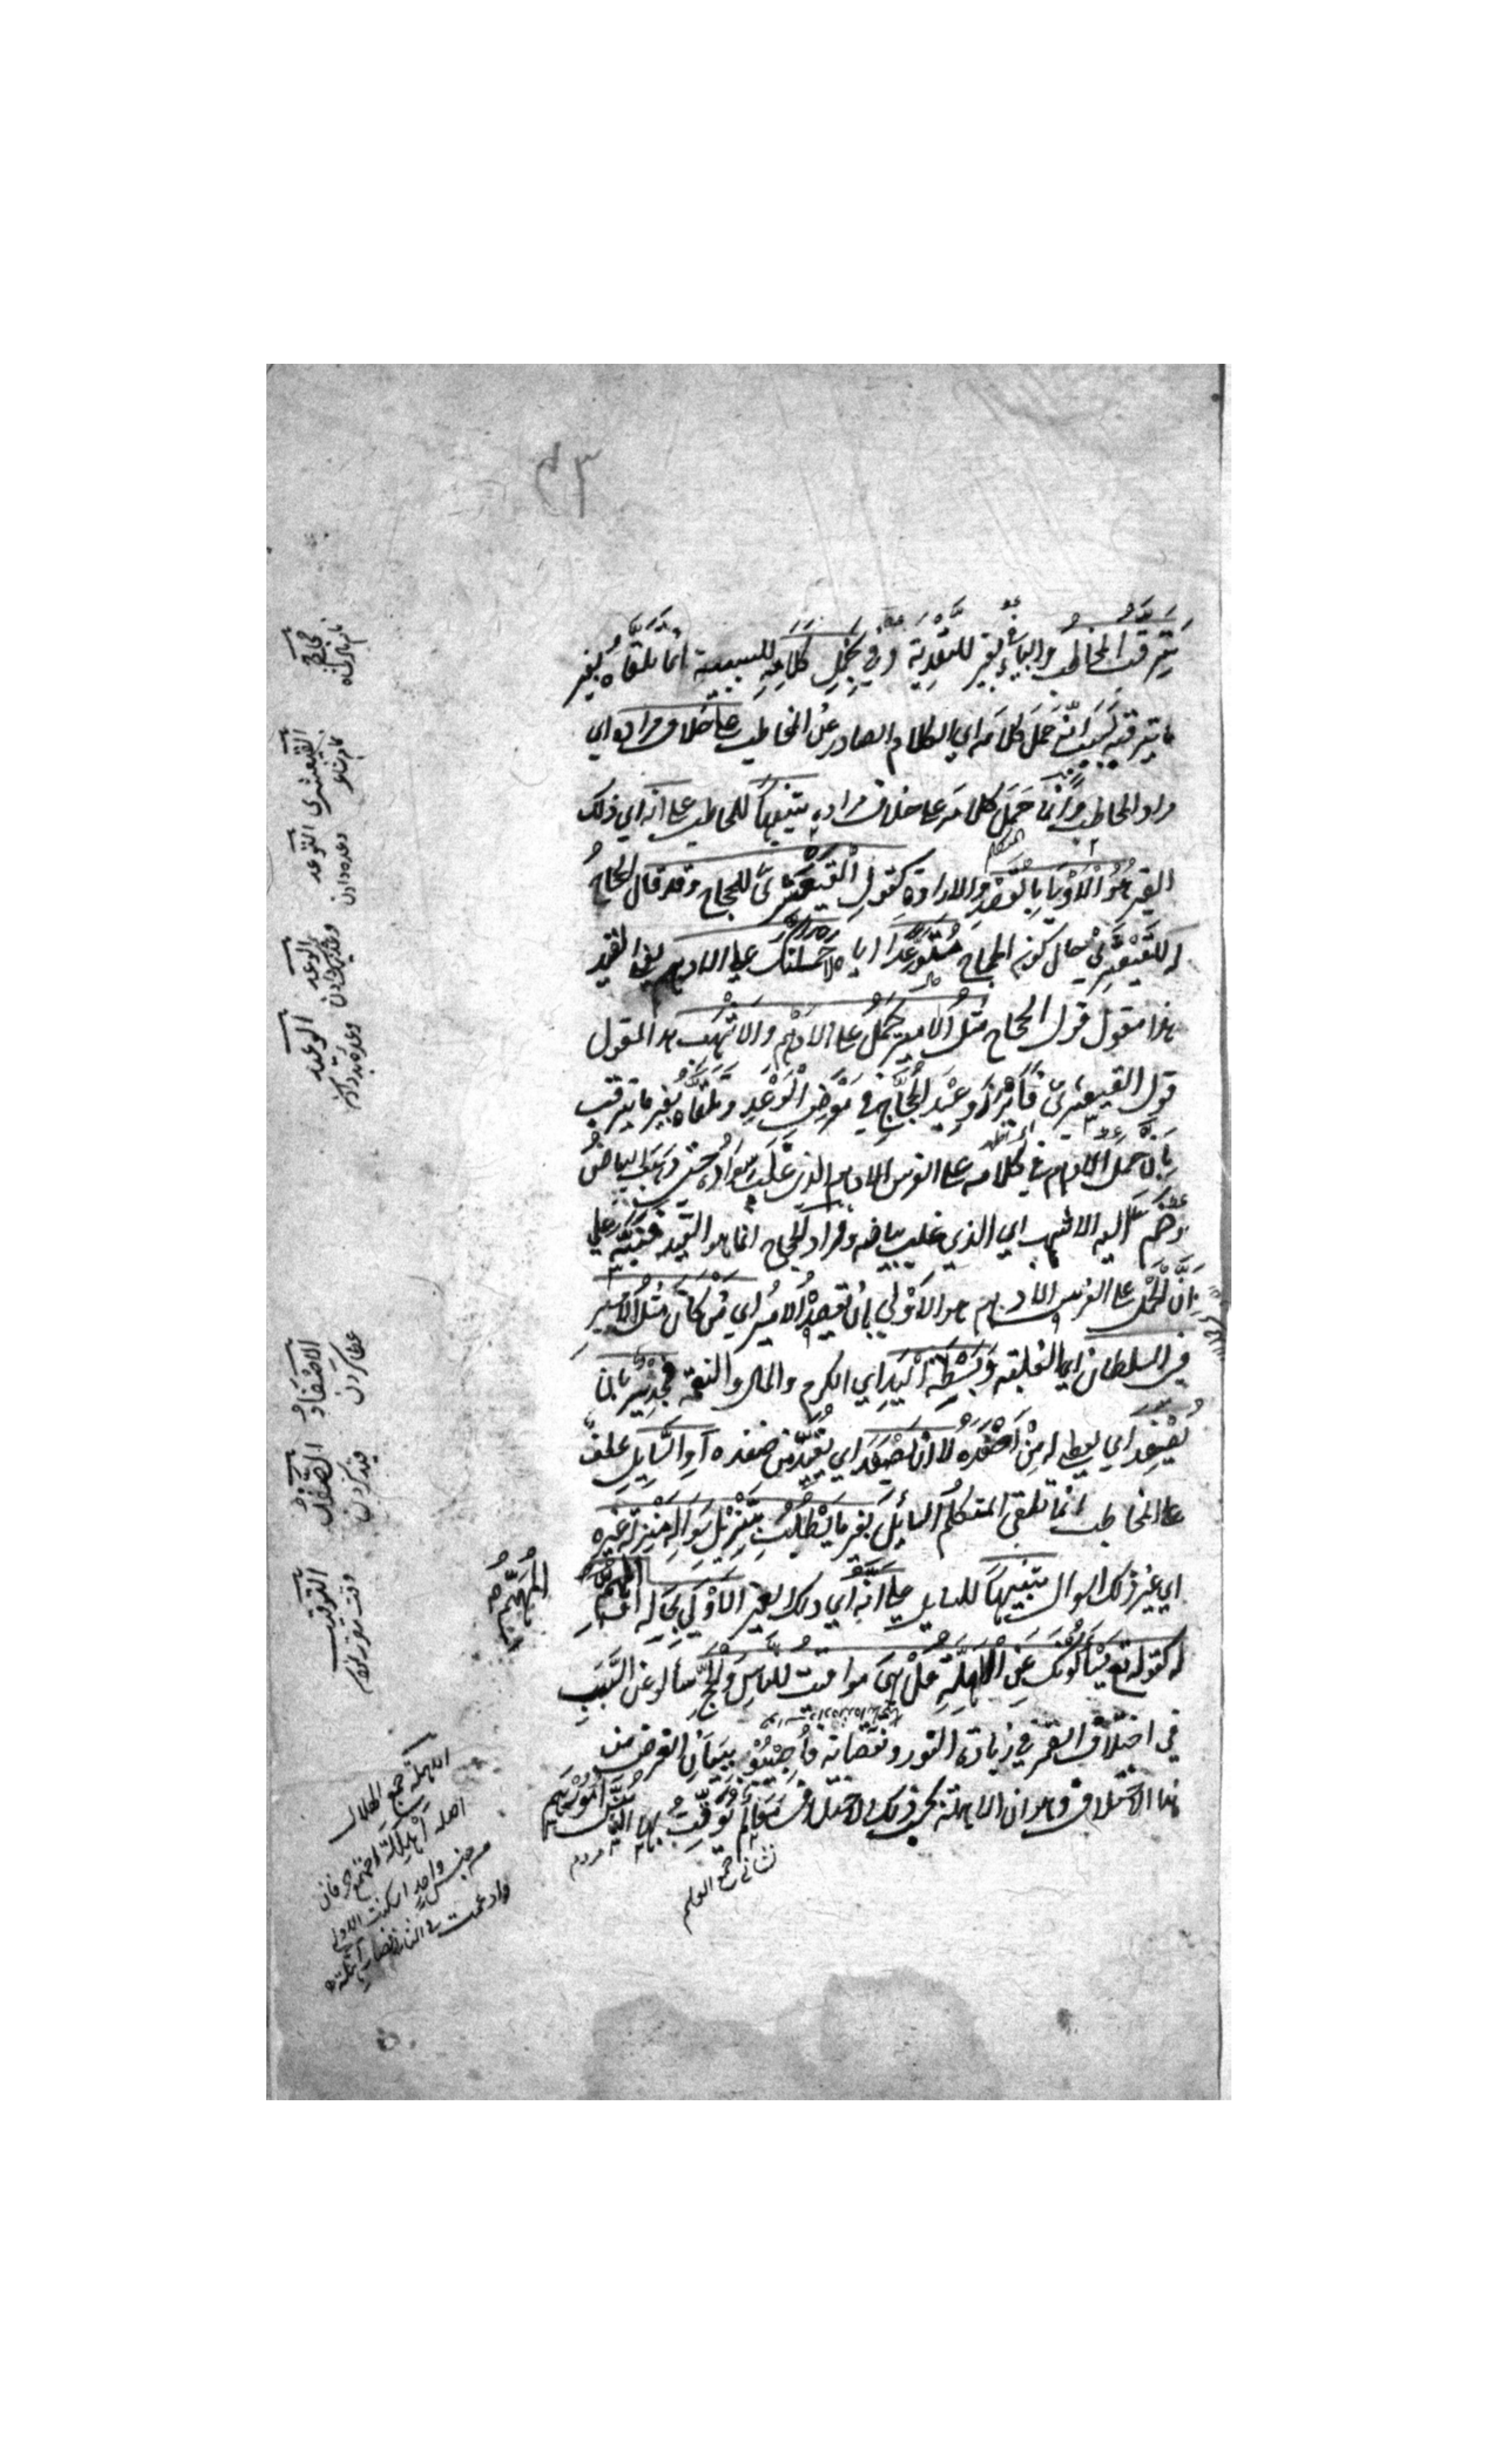 يترقب المخاطب والباء في بغير للتعدية وفي بحمل كلامه للسببية انما تلقاه بغير
ما يترقبه بسبب انه حمل كلامه اي الكلام الصادر عن المخاطب على خلاف مراده اي
مراد المخاطب وانما حمل كلامه على خلاف مراده تنبيها للمخاطب على انه اي ذلك
الغير هو الاولى بالقصد والارادة كقول القبعثرى للحجاج وقد قال الحجاج
له للقبعثرى حال كون الحجاج متوعدا اياه لاحملنك على الادهم يعني القيد
هذا مقول قول الحجاج مثل الامير حمل على الادهم والاشهب هذا مقول
قول القبعثرى فابرز وعيد الحجاج في معرض الوعد وتلقاه بغير ما يترقب
بان حمل الادهم في كلامه على الفرس الادهم الذي غلب سواده حتى ذهب البياض
وضم اليه الاشهب اي الذي غلب بياضه ومراد الحجاج انما هو القيد فنبه على
ان الحمل على الفرس الادهم هو الاولى بان يقصده الامير اي من كان مثل الامير
في السلطان اي الغلبة وبسطة اليد اي الكرم والمال والنعمة فجدير بان
يصفد اي يعطي له من اصفده لا ان يصفد اي يقيد من صفده او السايل عطف
على المخاطب انما تلقى المتكلم السائل بغير ما يتطلب بتنزيل سواله منزلة غيره
اي غير ذلك السوال تنبيها للسايل على انه اي ذلك الغير الاولى بحاله او المهم
له كقوله تع يسألونك عن الاهلة قل هي مواقيت للناس والحج سألو عن السبب
في اختلاف القمر في زيادة النور ونقصانه فأجيبو ببيان الغرض من
هذا الاختلاف وهو ان الاهلة بحسب ذلك الاختلاف معالم توقت بها الناس امورهم
مردم
جمع المعلم
المهم
القبعثرى
نام شاعر
التوعد
وعده دادن
الوعيد
الاصفاد
عطا كردن
الصفد
قيد كردن
التوقيت
الاهلة جمع الهلال
اصله اهللة اجتمع حرفان
من جنس واحد اسكنت الاولى
وادغمت في الثاني فصار اهلة